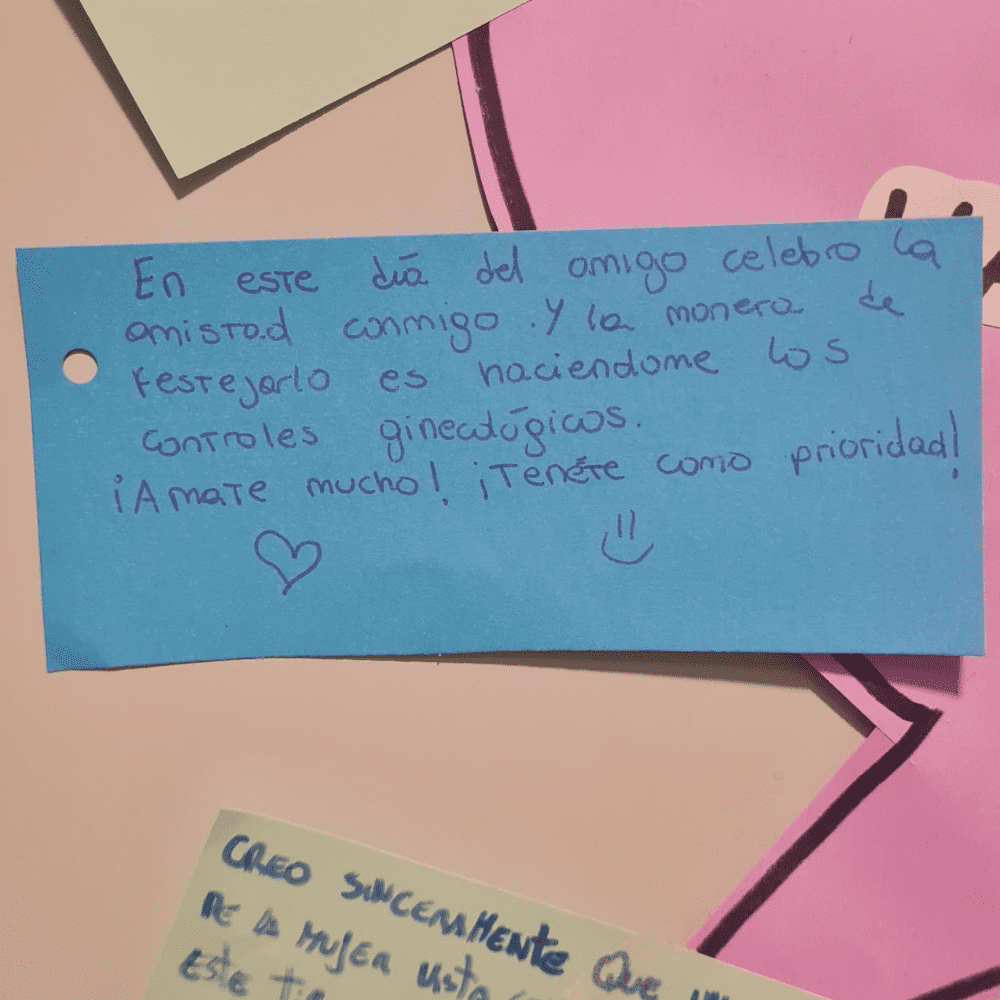 En este día del amigo celebro la
amistad conmigo. Y la manera de
festejarlo es haciendome los
controles ginecológicos.
¡Amate mucho! ¡Tenéte como prioridad!
CREO SINCERAMENTE QUE
DE LA MUJER
ESTE